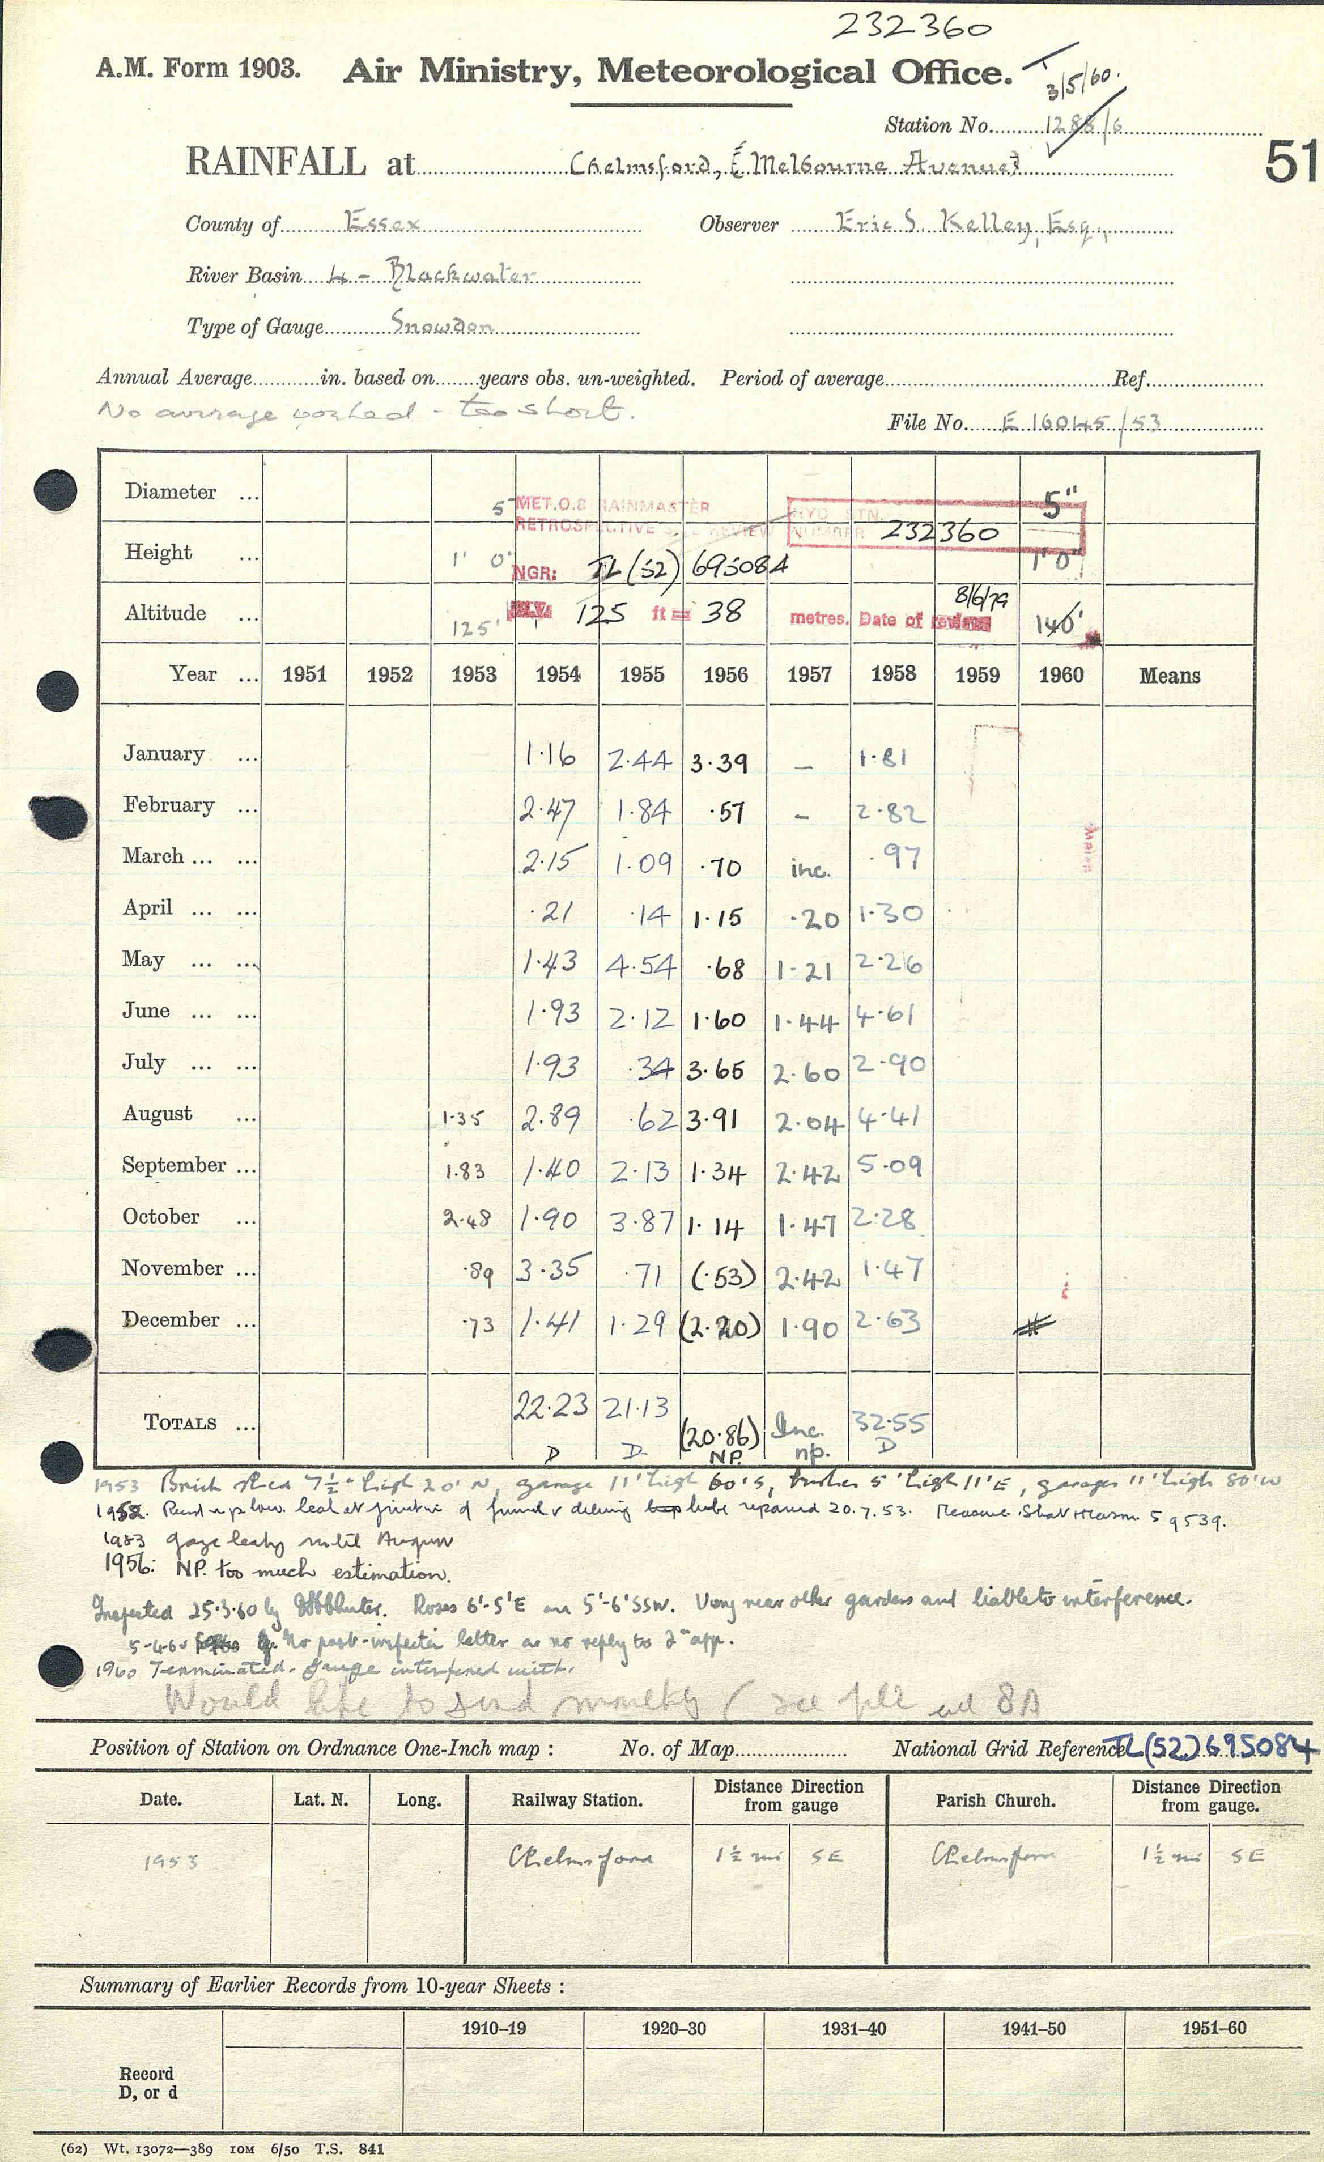 232360
A.M. Form 1903. Air Ministry, Meteorological Office. T 3/5/60.
Station No. 1288/6
RAINFALL at Chelmsford, (Melbourne Avenue) 51
County of Essex Observer Eric S. Kelley, Esq.,
River Basin 4 - Blackwater
Type of Gauge Snowdon
Annual Average in. based on years obs. un-weighted. Period of average Ref.
No average worked - too short.
File No. E 16045/53
Diameter ... 5" 5"
MET.O.8 RAINMASTER
RETROSPECTIVE REVIEW
HYD STN. NUMBER 232360
Height ... 1' 0" 1' 0"
NGR: TL (52) 695084
Altitude ... 125' 125 ft = 38 metres. Date of review 8/6/79 140'
Year ... 1951 1952 1953 1954 1955 1956 1957 1958 1959 1960 Means
January ... 1.16 2.44 3.39 - 1.81
February ... 2.47 1.84 .57 - 2.82
March ... ... 2.15 1.09 .70 inc. .97
April ... ... .21 .14 1.15 .20 1.30
May ... ... 1.43 4.54 .68 1.21 2.26
June ... ... 1.93 2.12 1.60 1.44 4.61
July ... ... 1.93 .34 3.65 2.60 2.90
August ... 1.35 2.89 .62 3.91 2.04 4.41
September ... 1.83 1.40 2.13 1.34 2.42 5.09
October ... 2.48 1.90 3.87 1.14 1.47 2.28
November ... .89 3.35 .71 (.53) 2.42 1.47
December ... .73 1.41 1.29 (2.20) 1.90 2.63
TOTALS ... 22.23 21.13 (20.86) Inc. 32.55
D D NP. np. D
1953 Brick shed 7½' high 20' N, garage 11' high 60' S, bushes 5' high 11' E, garages 11' high 80' W
1952. low. leak at of funnel tube repaired 20.7.53. Measure 59539.
1953 gage leaky until August
1956: NP. too much estimation.
Inspected 25.3.60 by Roses 6'-5' E 5'-6' SSW. Very near other gardens and liable to interference.
5-4-60 No post-inspection letter as no reply to 2nd app.
1960 Terminated. Gauge interfered with.
Would like to send monthly (see
Position of Station on Ordnance One-Inch map : No. of Map National Grid Reference TL(52)695084
Date. Lat. N. Long. Railway Station. Distance from gauge Direction Parish Church. Distance from gauge. Direction
1953 Chelmsford 1½ mi SE Chelmsford 1½ mi SE
Summary of Earlier Records from 10-year Sheets :
1910–19 1920–30 1931–40 1941–50 1951–60
Record
D, or d
(62) Wt. 13072—389 10M 6/50 T.S. 841